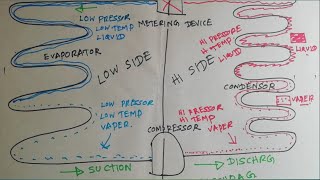 LOW PRESSOR
LOW TEMP
LIQUID
METERING DEVICE
HI PRESSURE
H TEMP
LIQUID
LIQUID
EVAPORATOR
LOW SIDE
HI SIDE
CONDENSOR
VAPER
LOW PRESSOR
LOW TEMP
VAPER
HI PRESSOR
HI TEMP
VAPER
COMPRESSOR
SUCTION
DISCHRG